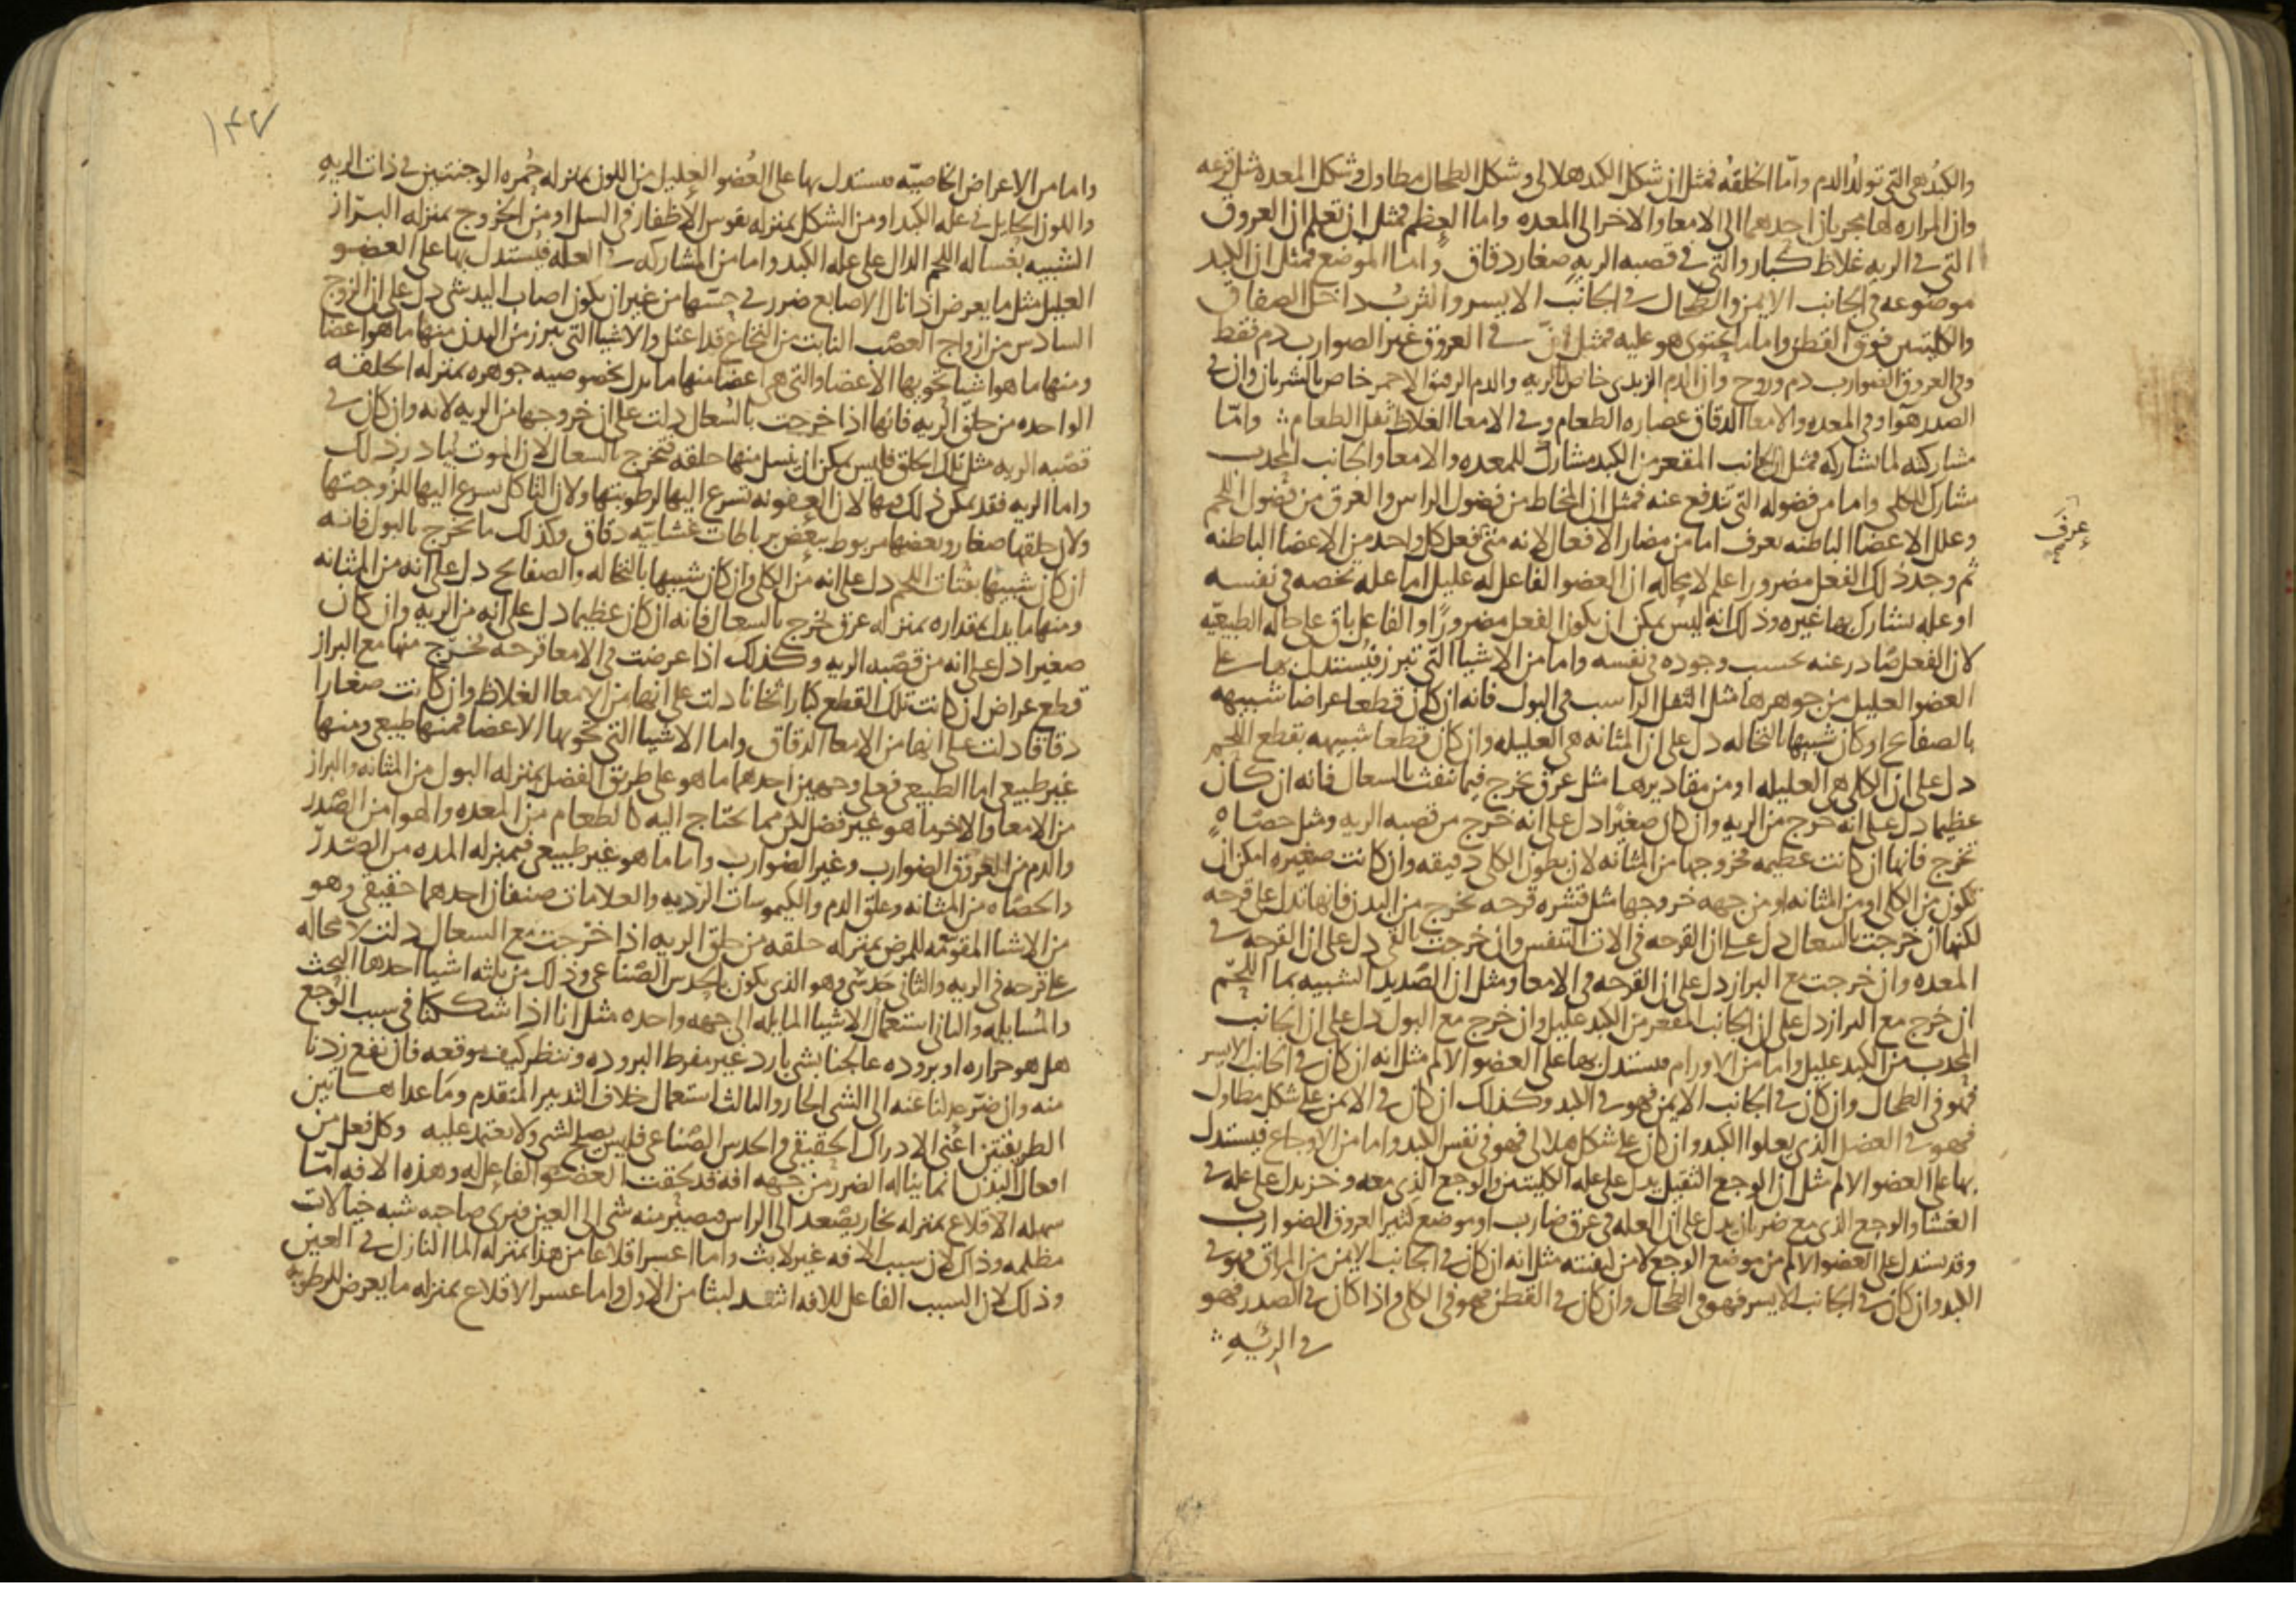 والكبد هي التي تولد الدم واما الخلقه فمثل ان شكل الكبد هلالي وشكل الطحال مطاول وشكل المعده مثل قرعه
وان المراره لها مجريان احدهما الى الامعا والاخر الى المعده واما العظم فمثل ان تعلم ان العروق
التي في الريه غلاظ كبار والتي في قصبه الريه صغار دقاق واما الموضع فمثل ان الكبد
موضوعه في الجانب الايمن والطحال في الجانب الايسر والثرب داخل الصفاق
والكليتين فوق القطن واما ما يحتوي هو عليه فمثل ان في العروق غير الضوارب دم فقط
وفي العروق الضوارب دم وروح وان الدم الزبدي خاص بالريه والدم الرقيق الاحمر خاص بالشريان وان في
الصدر هوا وفي المعده والامعا الدقاق عصاره الطعام وفي الامعا الغلاظ ثفل الطعام واما
مشاركته لما يشاركه فمثل ان الجانب المقعر من الكبد مشارك للمعده والامعا والجانب المحدب
مشارك للكلى واما من فضوله التي تندفع عنه فمثل ان المخاط من فضول الراس والعرق من فضول اللحم
وعلل الاعضا الباطنه تعرف اما من مضار الافعال لانه متى فعل كل واحد من الاعضا الباطنه
عرف
ثم وجد ذلك الفعل مضرورا علم لا محاله ان العضو الفاعل له عليل اما عله تخصه في نفسه
او عله يشارك بها غيره وذلك انه ليس يمكن ان يكون الفعل مضرورا والفاعل باق على حاله الطبيعيه
لان الفعل صادر عنه بحسب وجوده في نفسه واما من الاشيا التي تبرز فيستدل بها على
العضو العليل من جوهرها مثل الثفل الراسب في البول فانه ان كان قطعا عراضا شبيهه
بالصفايح او كان شبيها بالنخاله دل على ان المثانه هي العليله وان كان قطعا شبيهه بقطع اللحم
دل على ان الكلى هي العليله او من مقاديرها مثل عرق يخرج فيما ينفث بالسعال فانه ان كان
عظيما دل على انه خرج من الريه وان كان صغيرا دل على انه خرج من قصبه الريه ومثل حصاه
تخرج فانها ان كانت عظيمه فخروجها من المثانه لان بطون الكلى دقيقه وان كانت صغيره امكن ان
تكون من الكلى او من المثانه او من جهه خروجها مثل قشره قرحه تخرج من البدن فانها تدل على قرحه
لكنها ان خرجت بالسعال دل على ان القرحه في الات التنفس وان خرجت بالقي دل على ان القرحه في
المعده وان خرجت مع البراز دل على ان القرحه في الامعا ومثل ان الصديد الشبيه بما اللحم
ان خرج مع البراز دل على ان الجانب المقعر من الكبد عليل وان خرج مع البول دل على ان الجانب
المحدب من الكبد عليل واما من الاورام فيستدل بها على العضو الالم مثل انه ان كان في الجانب الايسر
فهو في الطحال وان كان في الجانب الايمن فهو في الكبد وكذلك ان كان في الايمن على شكل مطاول
فهو في العضل الذي يعلوا الكبد وان كان على شكل هلالي فهو في نفس الكبد واما من الاوجاع فيستدل
بها على العضو الالم مثل ان الوجع الثقيل يدل على عله الكليتين والوجع الذي معه وخز يدل على عله في
الغشا والوجع الذي مع ضربان يدل على ان العله في عرق ضارب او موضع كثير العروق الضوارب
وقد يستدل على العضو الالم من موضع الوجع لا من كيفيته مثل انه ان كان في الجانب الايمن من المراق فهو في
الكبد وان كان في الجانب الايسر فهو في الطحال وان كان في القطن فهو في الكلى واذا كان في الصدر فهو
في الريه
١٤٧
واما من الاعراض الخاصيه فيستدل بها على العضو العليل من اللون بمنزله حمره الوجنتين في ذات الريه
واللون الحايل في عله الكبد او من الشكل بمنزله تقوس الاظفار في السل او من الخروج بمنزله البراز
الشبيه بغساله اللحم الدال على عله الكبد واما من المشاركه في العله فيستدل بها على العضو
العليل مثل ما يعرض اذا نال الاصابع ضرر في حسها من غير ان يكون اصاب اليد شي دل على ان الزوج
السادس من ازواج العصب النابت من النخاع قد اعتل والاشيا التي تبرز من البدن منها ما هو اعضا
ومنها ما هو اشيا تحويها الاعضا والتي هي اعضا منها ما يدل بخصوصيه جوهره بمنزله الحلقه
الواحده من حلق الريه فانها اذا خرجت بالسعال دلت على ان خروجها من الريه لانه وان كان في
قصبه الريه مثل تلك الحلق فليس يمكن ان ينسل منها حلقه فتخرج بالسعال لان الموت يبادر ذلك
واما الريه فقد يمكن ذلك فيها لان العفونه تسرع اليها لرطوبتها ولان التاكل يسرع اليها للزوجتها
ولان حلقها صغار وبعضها مربوط ببعض برباطات غشاييه دقاق وكذلك ما يخرج بالبول فانه
ان كان شبيها بفتات اللحم دل على انه من الكلى وان كان شبيها بالنخاله والصفايح دل على انه من المثانه
ومنها ما يدل بمقداره بمنزله عرق يخرج بالسعال فانه ان كان عظيما دل على انه من الريه وان كان
صغيرا دل على انه من قصبه الريه وكذلك اذا عرضت في الامعا قرحه فخرج منها مع البراز
قطع عراض ان كانت تلك القطع كبارا ثخانا دلت على انها من الامعا الغلاظ وان كانت صغارا
دقاقا دلت على انها من الامعا الدقاق واما الاشيا التي تحويها الاعضا فمنها طبيعي ومنها
غير طبيعي اما الطبيعي فعلى وجهين احدهما ما هو على طريق الفضل بمنزله البول من المثانه والبراز
من الامعا والاخر ما هو غير فضل لكن مما يحتاج اليه كالطعام من المعده والهوا من الصدر
والدم من العروق الضوارب وغير الضوارب واما ما هو غير طبيعي فبمنزله المده من الصدر
والحصاه من المثانه وعلق الدم والكيموسات الرديه والعلامات صنفان احدهما حقيقي وهو
من الاشيا المقومه للمرض بمنزله حلقه من حلق الريه اذا خرجت مع السعال دلت لا محاله
على قرحه في الريه والثاني حدسي وهو الذي يكون بالحدس الصناعي وذلك من ثلثه اشيا احدها البحث
والمسايله والثاني استعمال الاشيا المايله الى جهه واحده مثل انا اذا شككنا في سبب الوجع
هل هو حراره او بروده عالجنا بشي بارد غير مفرط البروده وننظر كيف موقعه فان نفع زدنا
منه وان ضر عدلنا عنه الى الشي الحار والثالث استعمال خلاف التدبير المتقدم وما عدا هاتين
الطريقتين اعني الادراك الحقيقي والحدس الصناعي فليس يصلح لشي ولا يعتمد عليه وكل فعل من
افعال البدن انما يناله الضرر من جهه افه قد لحقت العضو الفاعل له وهذه الافه اما
سهله الاقلاع بمنزله بخار يصعد الى الراس فيصير منه شي الى العين فيرى صاحبه شبه خيالات
مظلمه وذاك لان سبب الافه غير لابث واما اعسر اقلاعا من هذا بمنزله الما النازل في العين
وذلك لان السبب الفاعل للافه اشد لبثا من الاول واما عسر الاقلاع بمنزله ما يعرض للرطوبه